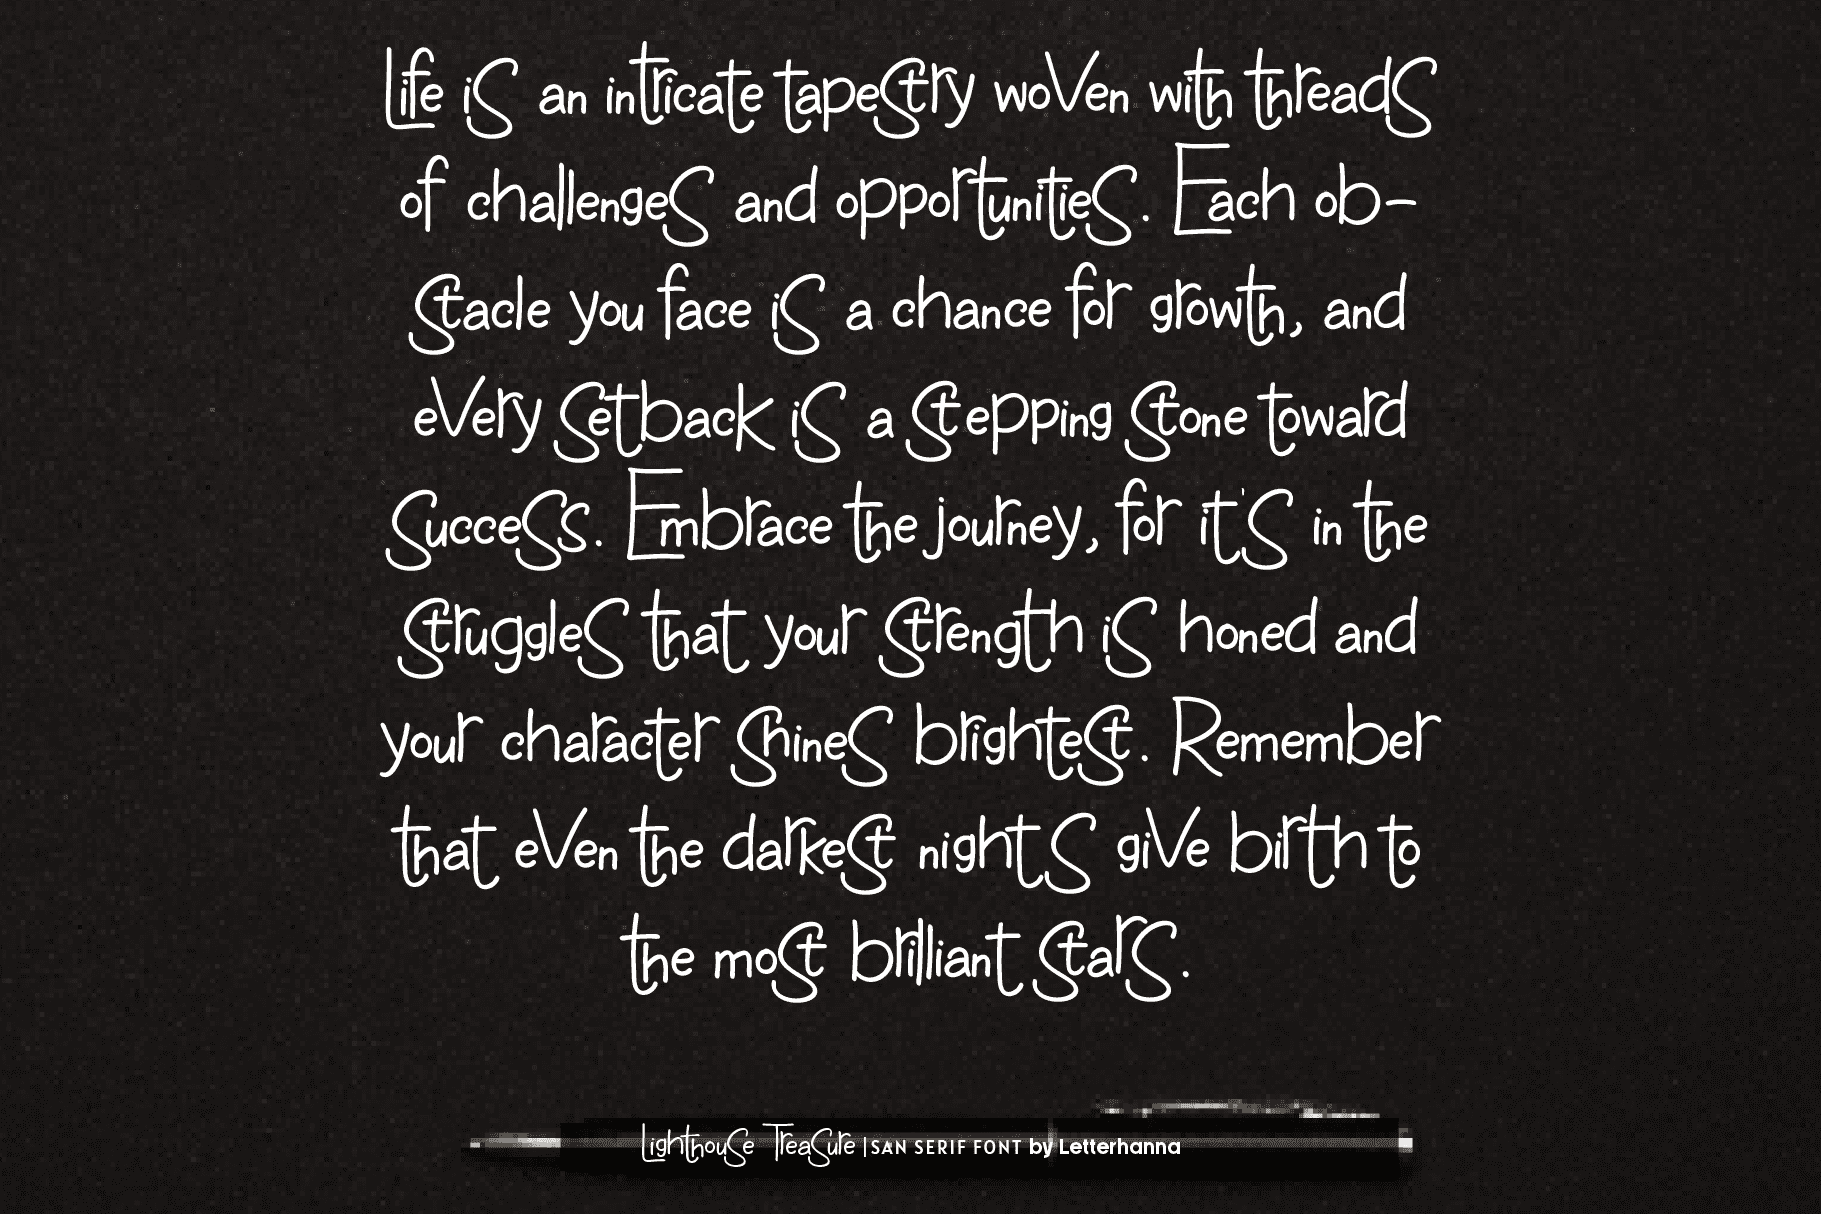 Life is an intricate tapestry woven with threads
of challenges and opportunities. Each ob-
stacle you face is a chance for growth, and
every setback is a stepping stone toward
success. Embrace the journey, for it's in the
struggles that your strength is honed and
your character shines brightest. Remember
that even the darkest nights give birth to
the most brilliant stars.
Lighthouse Treasure | SAN SERIF FONT by Letterhanna